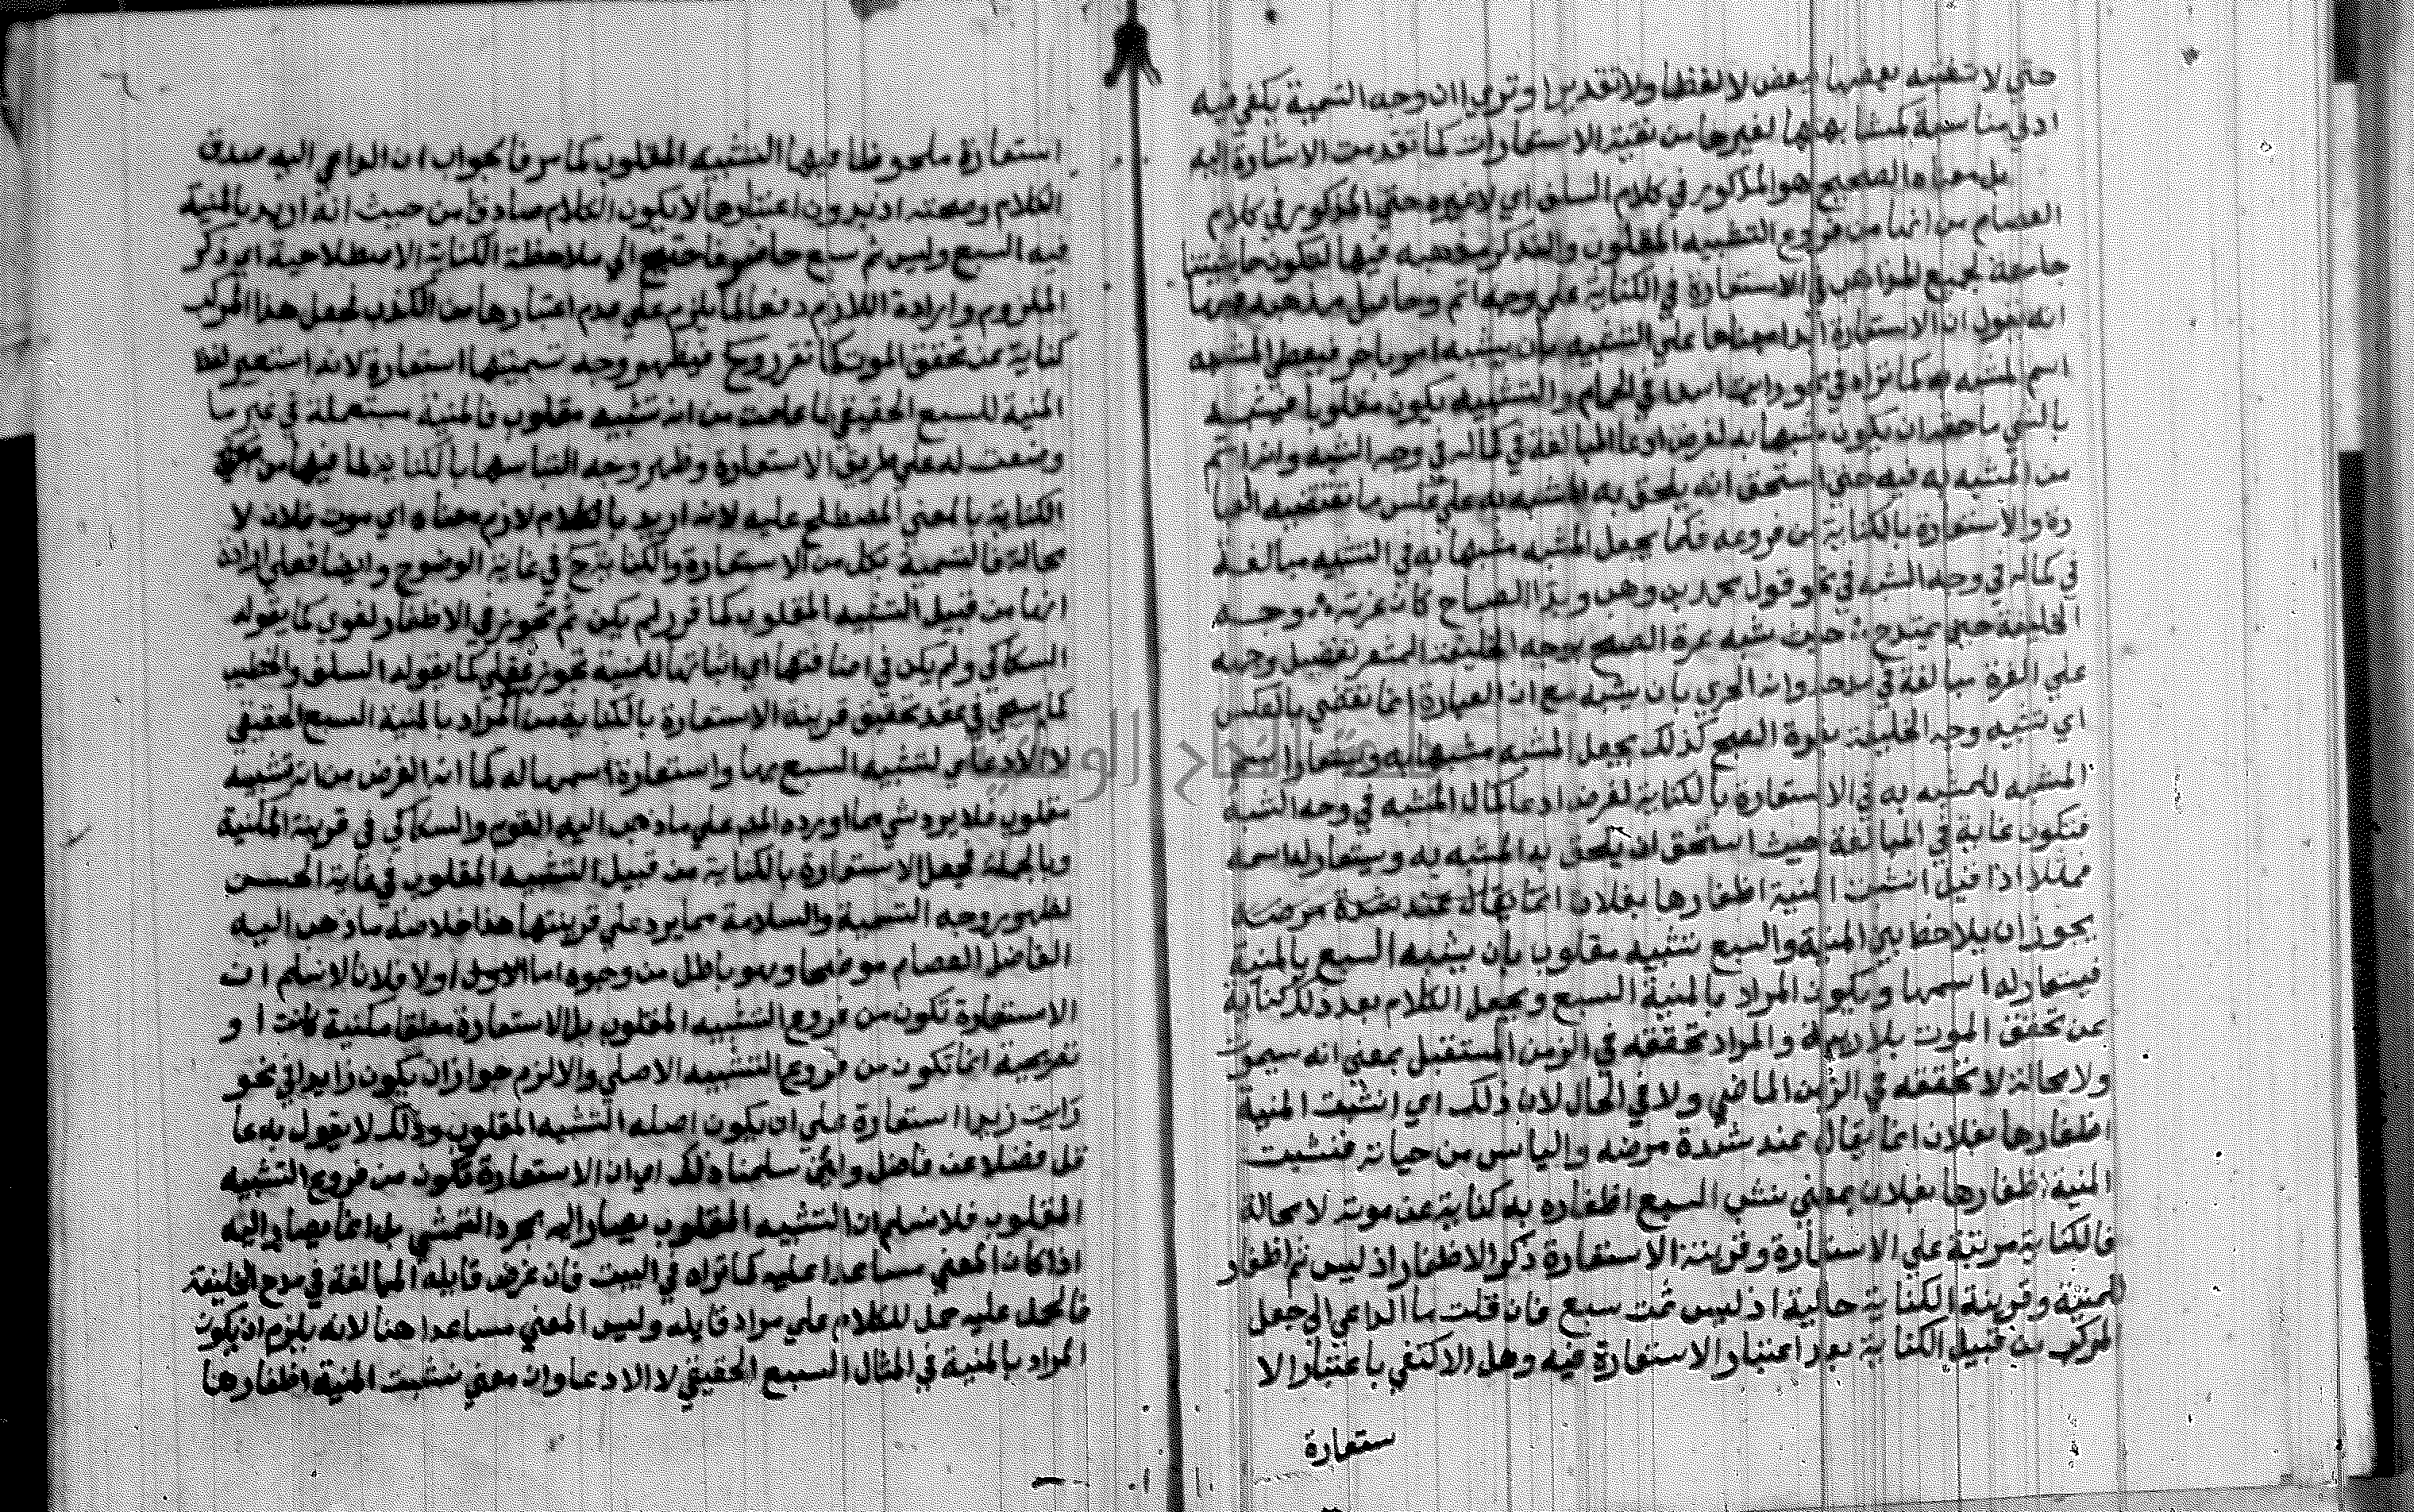 حتى لا تشتبه بعضها ببعض لا لفظا ولا تقديرا وترى ان وجه التسمية يكفي فيه
ادنى مناسبة لغيرها من بقية الاستعارات كما تقدمت الاشارة اليه
بل معناه الصحيح هو المذكور في كلام السلف اي لا غيره حتى المذكور في كلام
العصام من انها من فروع التشبيه المقلوب ولنذكر مذهبه فيها لتكون حاشيتنا
جامعة لجميع المذاهب في الاستعارة في الكناية على وجه اتم وحاصل مذهبه فيها
انه يقول ان الاستعارة على التشبيه بان يشبه امر باخر فيعطى المشبه
اسم المشبه به كما تراه في نحو رايت اسدا في الحمام والتشبيه يكون مقلوبا فيشبه
بالشي ما حقه ان يكون مشبها به لغرض ادعا المبالغة في كماله في وجه الشبه وانه اتم
من المشبه به فيه حتى استحق انه يلحق به المشبه به على عكس ما تقتضيه العبا
رة والاستعارة بالكناية من فروعه فكما يجعل المشبه مشبها به في التشبيه مبالغة
في كماله في وجه الشبه في نحو قول محمد بن وهب وبدا الصباح كان غرته وجه
الخليفة حين يمتدح حيث شبه غرة الصبح بوجه الخليفة لتفضيل وجهه
على الغرة مبالغة في مدحه وانه الحري بان يشبه مع ان العبارة انما تقتضي بالعكس
اي تشبيه وجه الخليفة بغرة الصبح كذلك يجعل المشبه مشبها به ويستعار اسم
المشبه للمشبه به في الاستعارة بالكناية لغرض ادعا كمال المشبه في وجه الشبه
فتكون غاية في المبالغة حيث استحق ان يلحق به المشبه به ويستعار له اسمه
فمثلا اذا قيل انشبت المنية اظفارها بفلان انما يقال عند شدة مرضه
يجوز ان يلاحظ بين المنية والسبع تشبيه مقلوب بان يشبه السبع بالمنية
فيستعار له اسمها ويكون المراد بالمنية السبع ويجعل الكلام بعد ذلك كناية
عن تحقق الموت بلا ريبة والمراد تحققه في الزمن المستقبل بمعنى انه سيموت
ولا محالة لا تحققه في الزمن الماضي ولا في الحال لان ذلك اي انشبت المنية
اظفارها بفلان انما يقال عند شدة مرضه والياس من حياته فنشبت
المنية اظفارها بفلان بمعنى نشب السبع اظفاره به كناية عن موته لا محالة
فالكناية مرتبة على الاستعارة وقرينة الاستعارة ذكر الاظفار اذ ليس ثم اظفار
للمنية وقرينة الكناية حالية اذ ليس ثمت سبع فان قلت ما الداعي الى جعل
المركب من قبيل الكناية بعد اعتبار الاستعارة فيه وهل الاكتفي باعتبار الا
ستعارة
استعارة ملحوظا فيها التشبيه المقلوب كما مر فالجواب ان الداعي اليه صدق
الكلام وصحته اذ بدون اعتبارها لا يكون الكلام صادقا من حيث انه اريد بالمنية
فيه السبع وليس ثم سبع حاضر فاحتيج الى ملاحظة الكناية الاصطلاحية اي ذكر
الملزوم وارادة اللازم دفعا لما يلزم على عدم اعتبارها من الكذب فجعل هذا المركب
كناية عن تحقق الموت كما تقرر وح فيظهر وجه تسميتها استعارة لانه استعير لفظ
المنية للسبع الحقيقي لما علمت من انه تشبيه مقلوب فالمنية مستعملة في غير ما
وضعت له على طريق الاستعارة وظهر وجه التباسها بالكناية لما فيها من
الكناية بالمعنى المصطلح عليه لانه اريد بالكلام لازم معناه اي موت فلان لا
محالة فالتسمية بكل من الاستعارة والكناية ح في غاية الوضوح وايضا فعلى ارادة
انها من قبيل التشبيه المقلوب كما قرر لم يكن ثم تجوز في الاظفار لغوي كما يقوله
السكاكي ولم يكن في اضافتها اي اثباتها للمنية تجوز عقلي كما يقوله السلف والخطيب
كما سيجي في عقد تحقيق قرينة الاستعارة بالكناية من المراد بالمنية السبع الحقيقي
لا الادعاي لتشبيه السبع بها واستعارة اسمها له كما انه الغرض من انه تشبيه
مقلوب فلا يرد شي مما اورده المص على ما ذهب اليه القوم والسكاكي في قرينة المكنية
وبالجملة فجعل الاستعارة بالكناية من قبيل التشبيه المقلوب في غاية الحسن
لظهور وجه التسمية والسلامة مما يرد على قرينتها هذا خلاصة ما ذهب اليه
الفاضل العصام موضحا وهو باطل من وجوه اما الاول اولا فلانا لا نسلم ان
الاستعارة تكون من فروع التشبيه المقلوب بل الاستعارة مطلقا مكنية كانت او
تصريحية انما تكون من فروع التشبيه الاصلي والا لزم جواز ان يكون زايدا في نحو
رايت زيدا استعارة على ان يكون اصله التشبيه المقلوب وذلك لا يقول به عا
قل فضلا عن فاضل ولئن سلمنا ذلك اي ان الاستعارة تكون من فروع التشبيه
المقلوب فلا نسلم ان التشبيه المقلوب يصار اليه بمجرد التمشي بل انما يصار اليه
اذا كان المعنى مساعدا عليه كما تراه في البيت فان غرض قايله المبالغة في مدح الخليفة
فالحمل عليه حمل للكلام على مراد قايله وليس المعنى مساعدا هنا لانه يلزم ان يكون
المراد بالمنية في المثال السبع الحقيقي لا الادعا وان معنى نشبت المنية اظفارها